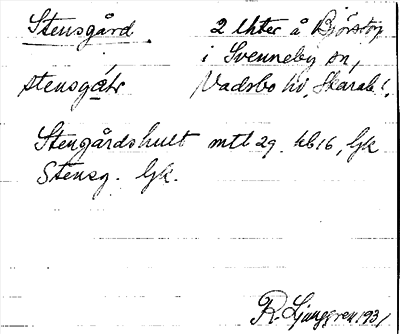 Stensgård 2 lhter å Björstorp
i Svenneby sn,
stensgǻɖr Vadsbo hd, Skarab. l.
Stengårdshult mtl 29. hb 16, Gk
Stensg. Gk.
R. Ljunggren 1931